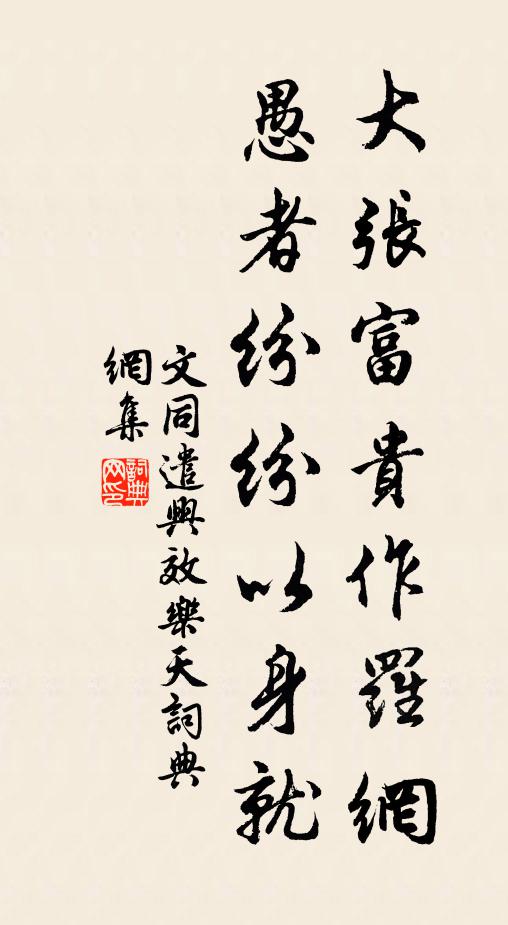 大張富貴作羅網
愚者紛紛以身就
文同遣興效樂天詞典
網集
詞典
网印